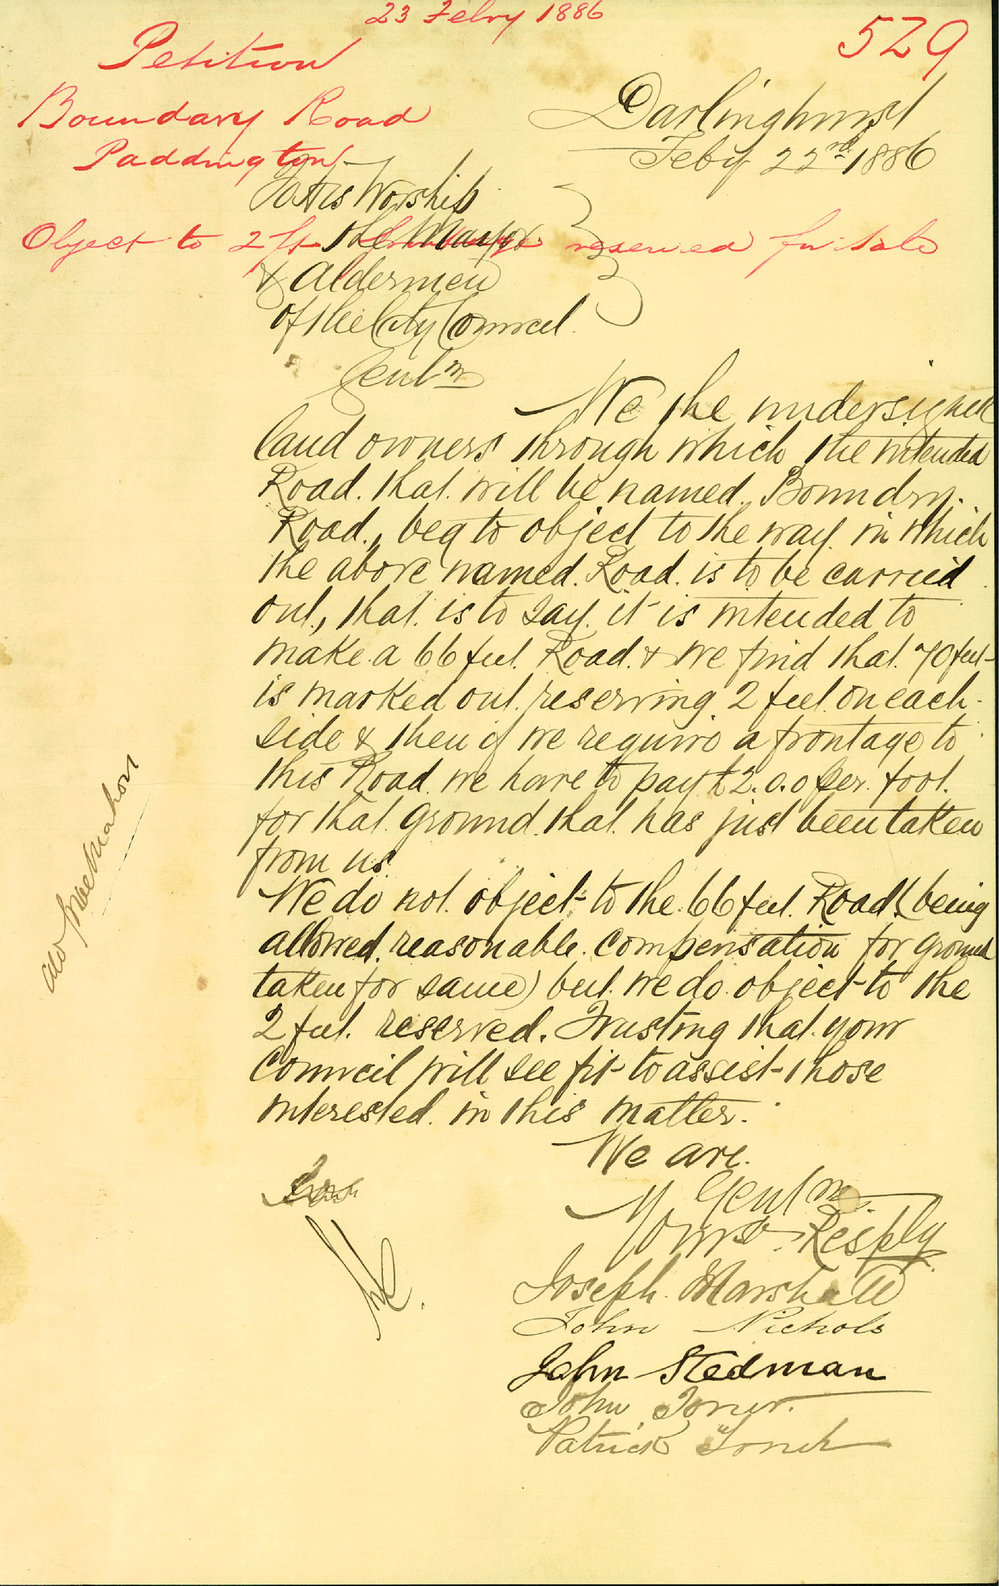 23 Febry 1886
529
Petition
Boundary Road
Paddington
Darlinghurst
Feby 22nd 1886
To His Worship
the Mayor
Object to 2 ft reserved for sale
& Aldermen
of the City Council
Gentm
We the undersigned
land owners through which the intended
Road. that will be named. Boundry.
Road., beg to object to the way in which
the above named. Road. is to be carried
out., that is to say. it is intended to
make a 66 feet. Road. & we find that 70 feet
is marked out. reserving 2 feet on each
side & then if we require a frontage to
this Road. we have to pay £2.0.0 per. foot.
for that ground. that has just been taken
from us
We do not object to the 66 feet. Road (being
allowed. reasonable. compensation for ground
taken for same) but we do object to the
2 feet. reserved. Trusting that your
Council will see fit to assist those
interested. in this matter.
We are.
Gentm
Yours. Resply
Joseph Marshall
John Nichols
John Stedman
John
Patrick